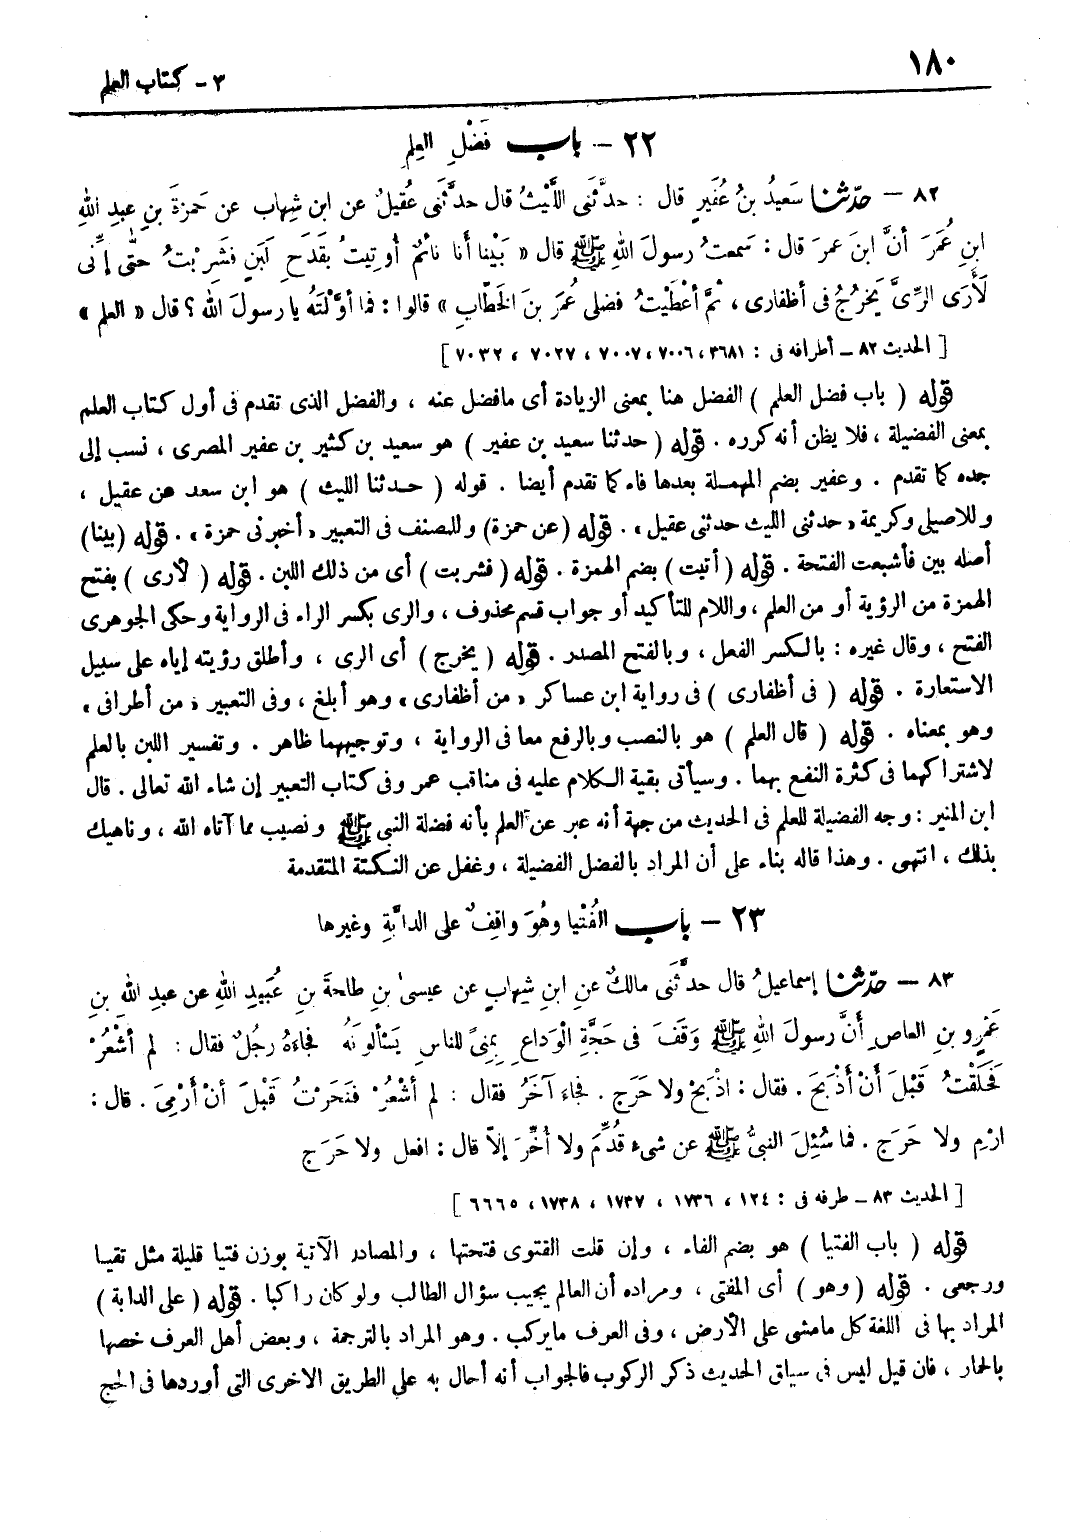 ١٨٠
٣ - كتاب العلم
٢٢ - باب فَضْلِ العِلمِ
٨٢ - حدّثنا سَعيدُ بنُ عُفَيرٍ قال : حدَّثَنى اللَّيْثُ قال حدَّثَنى عُقَيلٌ عن ابن شِهاب عن حَمزةَ بنِ عبدِ اللهِ
ابنِ عُمَرَ أنَّ ابنَ عمرَ قال : سَمعتُ رسولَ اللهِ ﷺ قال « بَيْنا أنا نائمٌ أُوتِيتُ بقَدَحِ لَبَنٍ فشَرِبْتُ حتّٰى إنّى
لَأَرَى الرِّىَّ يَخرُجُ فى أظفارى ، ثمَّ أعْطَيْتُ فضلى عُمَرَ بنَ الخَطّابِ » قالوا : فما أوَّلْتَهُ يا رسولَ الله ؟ قال « العلم »
[ الحديث ٨٢ ــ أطرافه فى : ٣٦٨١ ، ٧٠٠٦ ، ٧٠٠٧ ، ٧٠٢٧ ، ٧٠٣٢ ]
قوله ( باب فضل العلم ) الفضل هنا بمعنى الزيادة أى ما فضل عنه ، والفضل الذى تقدم فى أول كتاب العلم
بمعنى الفضيلة ، فلا يظن أنه كرره . قوله ( حدثنا سعيد بن عفير ) هو سعيد بن كثير بن عفير المصرى ، نسب إلى
جده كما تقدم . وعفير بضم المهملة بعدها فاء كما تقدم أيضا . قوله ( حدثنا الليث ) هو ابن سعد عن عقيل ،
وللاصيلى وكريمة « حدثنى الليث حدثنى عقيل » . قوله (عن حمزة) وللمصنف فى التعبير « أخبرنى حمزة » . قوله (بينا)
أصله بين فأشبعت الفتحة . قوله ( أتيت ) بضم الهمزة . قوله ( فشربت ) أى من ذلك اللبن . قوله ( لأرى ) بفتح
الهمزة من الرؤية أو من العلم ، واللام للتأكيد أو جواب قسم محذوف ، والرى بكسر الراء فى الرواية وحكى الجوهرى
الفتح ، وقال غيره : بالكسر الفعل ، وبالفتح المصدر . قوله ( يخرج ) أى الرى ، وأطلق رؤيته إياه على سبيل
الاستعارة . قوله ( فى أظفارى ) فى رواية ابن عساكر « من أظفارى » وهو أبلغ ، وفى التعبير « من أطرافى »
وهو بمعناه . قوله ( قال العلم ) هو بالنصب وبالرفع معا فى الرواية ، وتوجيههما ظاهر . وتفسير اللبن بالعلم
لاشتراكهما فى كثرة النفع بهما . وسيأتى بقية الكلام عليه فى مناقب عمر وفى كتاب التعبير إن شاء الله تعالى . قال
ابن المنير : وجه الفضيلة للعلم فى الحديث من جهة أنه عبر عن العلم بأنه فضلة النبى ﷺ ونصيب مما آتاه الله ، وناهيك
بذلك ، انتهى . وهذا قاله بناء على أن المراد بالفضل الفضيلة ، وغفل عن النكتة المتقدمة
٢٣ - باب الفُتْيا وهُوَ واقِفٌ على الدابَّةِ وغيرها
٨٣ - حدّثنا إسماعيلُ قال حدَّثَنى مالكٌ عنِ ابنِ شِهابٍ عن عيسىٰ بنِ طلحةَ بنِ عُبَيدِ اللهِ عن عبدِ اللهِ بنِ
عَمْرِو بنِ العاصِ أنَّ رسولَ اللهِ ﷺ وَقَفَ فى حَجَّةِ الْوَداعِ بِمِنىً للناسِ يَسْألونَهُ فجاءَهُ رجُلٌ فقال : لم أشْعُرْ
فَحَلَقْتُ قَبْلَ أنْ أذْبَحَ . فقال : اذْبَحْ ولا حَرَج . فجاءَ آخَرُ فقال : لم أشْعُرْ فنَحَرْتُ قَبْلَ أنْ أرْمِىَ . قال :
ارْمِ ولا حَرَج . فما سُئِلَ النبىُّ ﷺ عن شىء قُدِّمَ ولا أُخِّرَ إلاّ قال : افعل ولا حَرَج
[ الحديث ٨٣ ــ طرفه فى : ١٢٤ ، ١٧٣٦ ، ١٧٣٧ ، ١٧٣٨ ، ٦٦٦٥ ]
قوله ( باب الفتيا ) هو بضم الفاء ، وإن قلت الفتوى فتحتها ، والمصادر الآتية بوزن فتيا قليلة مثل تقيا
ورجعى . قوله ( وهو ) أى المفتى ، ومراده أن العالم يجيب سؤال الطالب ولو كان راكبا . قوله ( على الدابة )
المراد بها فى اللغة كل ما مشى على الأرض ، وفى العرف ما يركب . وهو المراد بالترجمة ، وبعض أهل العرف خصها
بالحمار ، فان قيل ليس فى سياق الحديث ذكر الركوب فالجواب أنه أحال به على الطريق الاخرى التى أوردها فى الحج